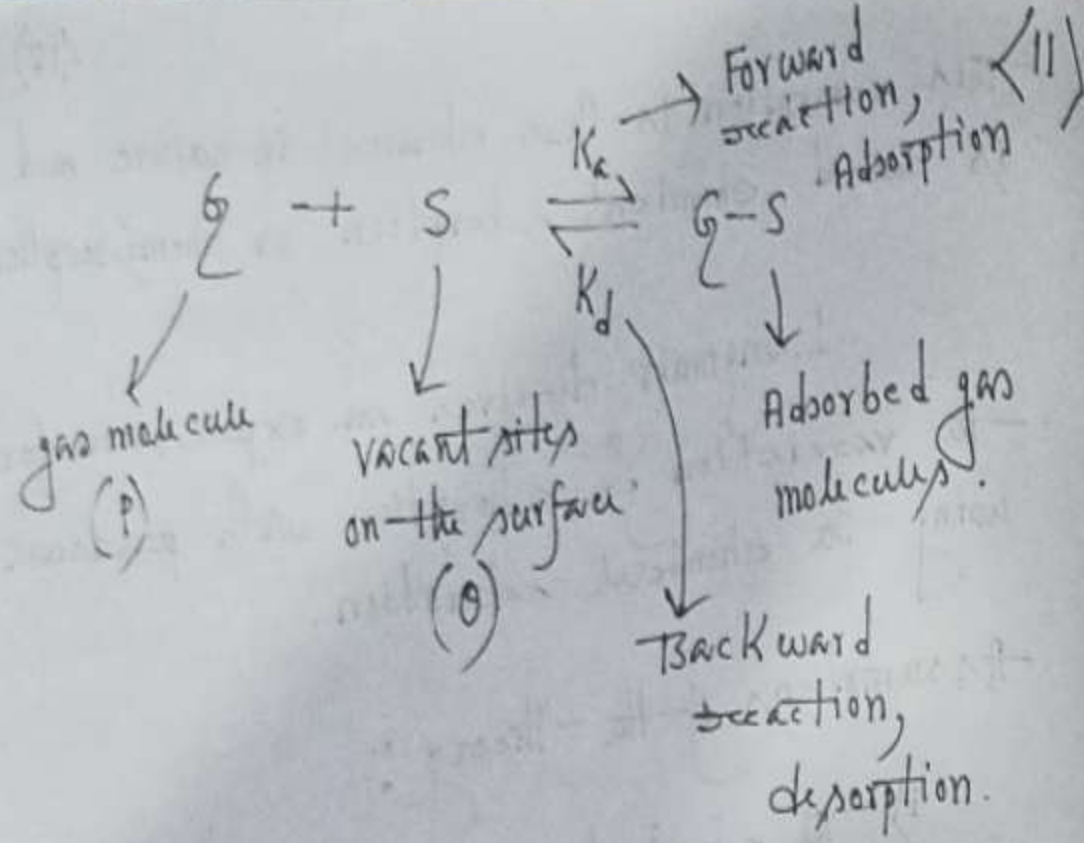 <11>
Forward
reaction,
Adsorption
Ka
G + S ⇌ G-S
Kd
gas molecule
(P)
vacant sites
on the surface.
(θ)
Adsorbed gas
molecules.
Backward
reaction,
desorption.